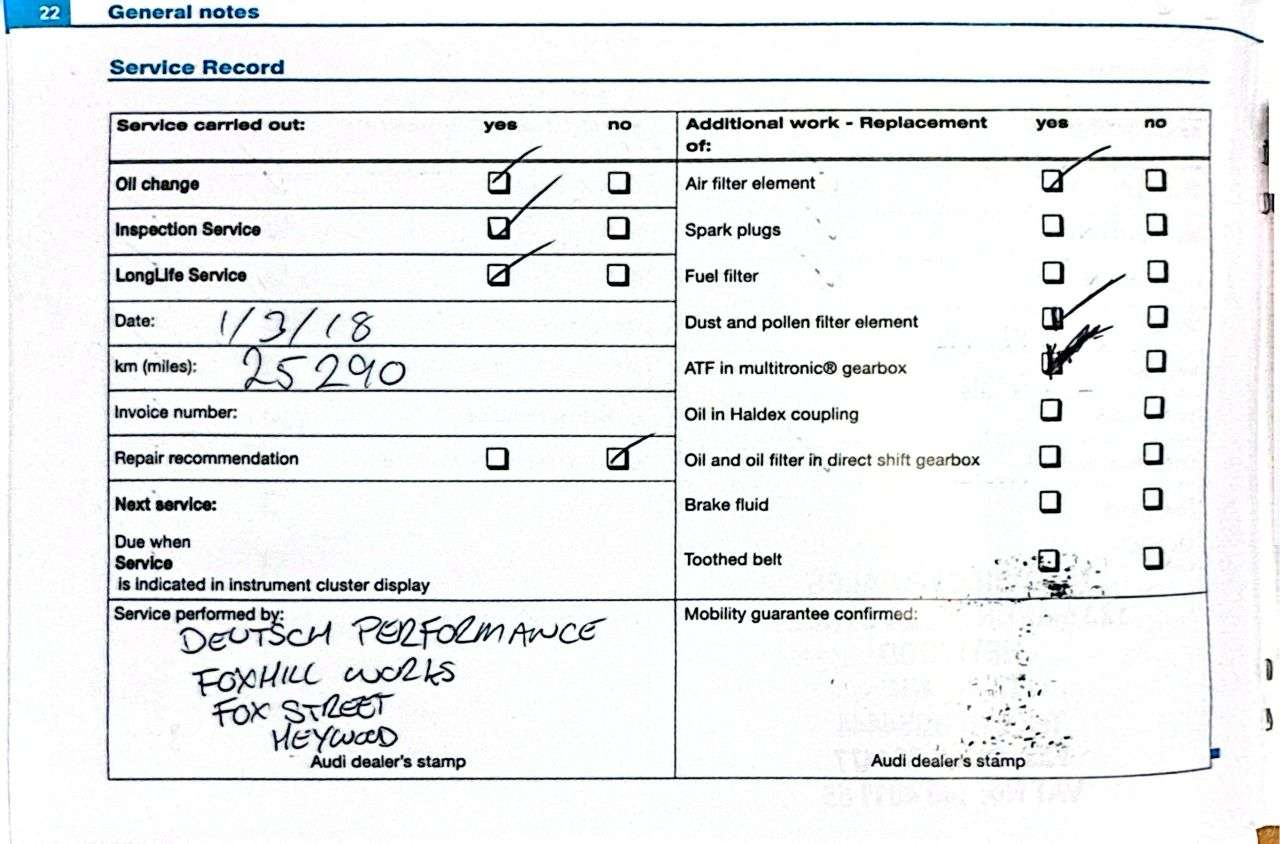 22 General notes
Service Record
Service carried out: yes no
Oil change
Inspection Service
LongLife Service
Date: 1/3/18
km (miles): 25290
Invoice number:
Repair recommendation yes no
Next service:
Due when
Service
is indicated in instrument cluster display
Service performed by:
DEUTSCH PERFORMANCE
FOXHILL WORKS
FOX STREET
HEYWOOD
Audi dealer's stamp
Additional work - Replacement yes no
of:
Air filter element
Spark plugs
Fuel filter
Dust and pollen filter element
ATF in multitronic® gearbox
Oil in Haldex coupling
Oil and oil filter in direct shift gearbox
Brake fluid
Toothed belt
Mobility guarantee confirmed:
Audi dealer's stamp